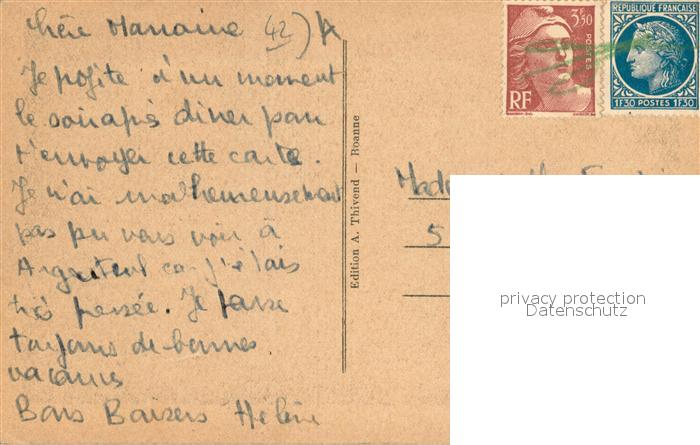 Chère Marraine 42)
Je profite d'un moment
le soir après diner pour
t'envoyer cette carte.
Je n'ai malheureusement
pas pu vous voir à
Argenteuil car j'étais
très pressée. Je passe
toujours de bonnes
vacances
Bons Baisers Hélène
Edition A. Thivend — Roanne
3F,50
POSTES
RF
REPUBLIQUE FRANÇAISE
1F30 POSTES 1F30
5
privacy protection
Datenschutz